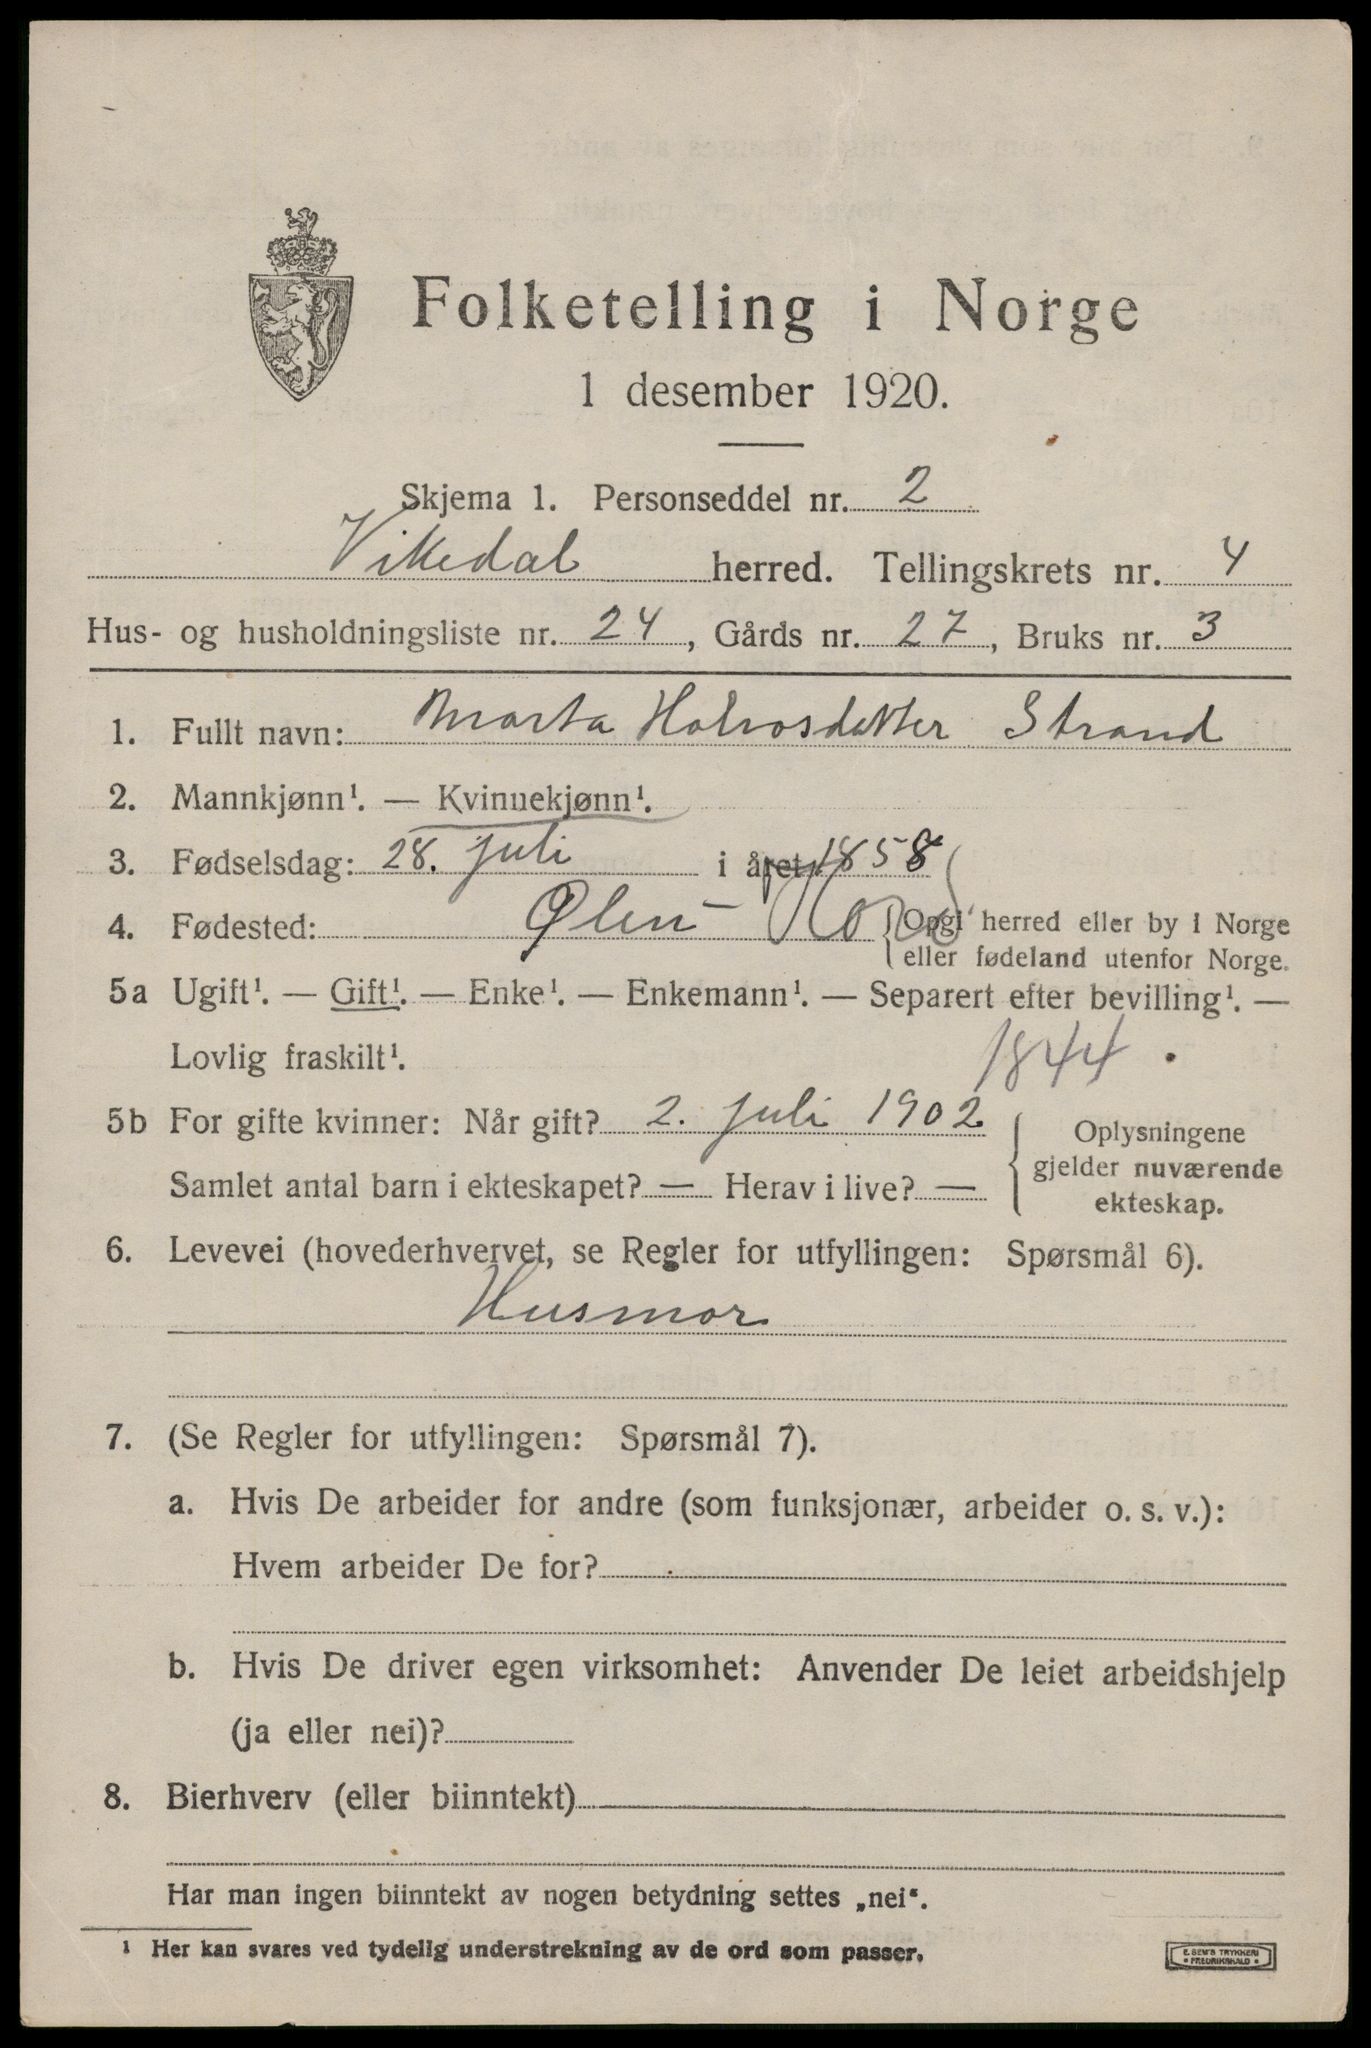 Folketelling i Norge
1 desember 1920.
Skjema 1. Personseddel nr. 2
Vikedal herred. Tellingskrets nr. 4
Hus- og husholdningsliste nr. 24, Gårds nr. 27, Bruks nr. 3
1. Fullt navn: Marta Halvosdatter Strand
2. Mannkjønn¹. — Kvinnekjønn¹.
3. Fødselsdag: 28. juli i året 1858
4. Fødested: Ølen - Hord {Opgi herred eller by i Norge
eller fødeland utenfor Norge.
5a Ugift¹. — Gift¹. — Enke¹. — Enkemann¹. — Separert efter bevilling¹. —
Lovlig fraskilt¹. 1844.
5b For gifte kvinner: Når gift? 2. juli 1902 Oplysningene
gjelder nuværende
Samlet antal barn i ekteskapet? — Herav i live? — ekteskap.
6. Levevei (hovederhvervet, se Regler for utfyllingen: Spørsmål 6).
Husmor
7. (Se Regler for utfyllingen: Spørsmål 7).
a. Hvis De arbeider for andre (som funksjonær, arbeider o. s. v.):
Hvem arbeider De for?
b. Hvis De driver egen virksomhet: Anvender De leiet arbeidshjelp
(ja eller nei)?
8. Bierhverv (eller biinntekt)
Har man ingen biinntekt av nogen betydning settes „nei“.
¹ Her kan svares ved tydelig understrekning av de ord som passer.
E. SEM'S TRYKKERI
• FREDRIKSHALD •